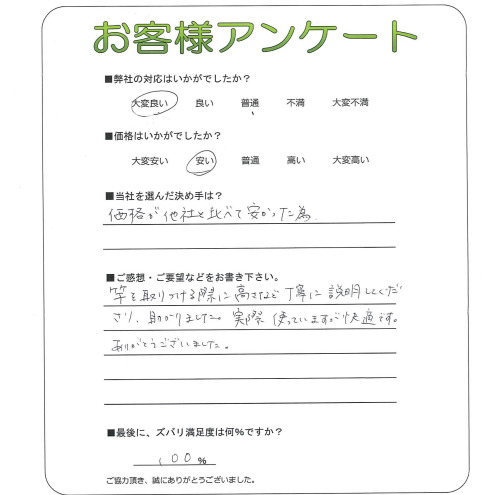 お客様アンケート
■弊社の対応はいかがでしたか？
大変良い 良い 普通 不満 大変不満
■価格はいかがでしたか？
大変安い 安い 普通 高い 大変高い
■当社を選んだ決め手は？
価格が他社と比べて安かった為
■ご感想・ご要望などをお書き下さい。
竿を取りつける際に高さなど丁寧に説明してくだ
さり、助かりました。実際使っていますが快適です。
ありがとうございました。
■最後に、ズバリ満足度は何％ですか？
100％
ご協力頂き、誠にありがとうございました。